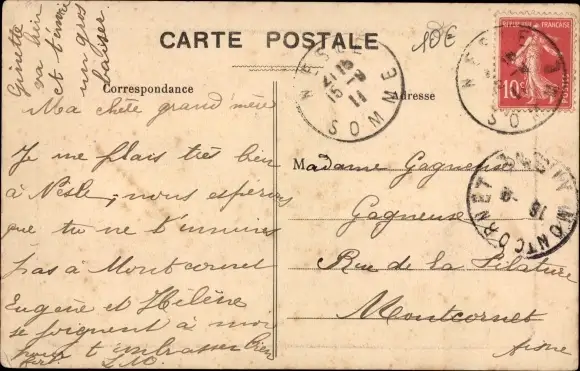 CARTE POSTALE
10€
Ginette
va bien
et t'envoie
un gros
baiser.
Correspondance
Adresse
Ma chère grand'mère
Je me plais très bien
à Nesle, nous espérons
que tu ne t'ennuies
pas à Montcornet
Eugène et Hélène
se joignent à moi
pour t'embrasser bien
fort.
Madame Gagneuse
Gagneuse
Rue de la Filature
Montcornet
Aisne
NESLE
SOMME
21 15
15 -8
11
RÉPUBLIQUE FRANÇAISE
10c
POSTES
NESLE
SOMME
MONTCORNET
16 -8